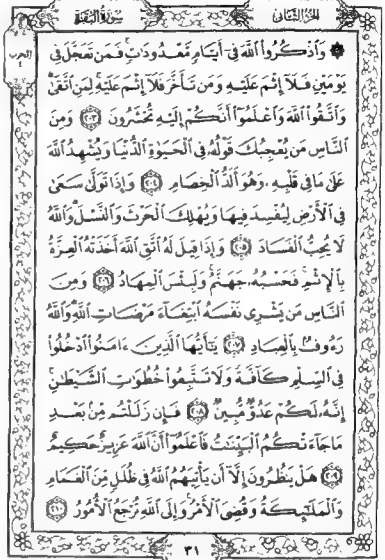 الجزء الثاني
سورة البقرة
الحزب
٤
۞ وَٱذْكُرُوا۟ ٱللَّهَ فِىٓ أَيَّامٍ مَّعْدُودَٰتٍ فَمَن تَعَجَّلَ فِى
يَوْمَيْنِ فَلَآ إِثْمَ عَلَيْهِ وَمَن تَأَخَّرَ فَلَآ إِثْمَ عَلَيْهِ لِمَنِ ٱتَّقَىٰ
وَٱتَّقُوا۟ ٱللَّهَ وَٱعْلَمُوٓا۟ أَنَّكُمْ إِلَيْهِ تُحْشَرُونَ ٢٠٣ وَمِنَ
ٱلنَّاسِ مَن يُعْجِبُكَ قَوْلُهُۥ فِى ٱلْحَيَوٰةِ ٱلدُّنْيَا وَيُشْهِدُ ٱللَّهَ
عَلَىٰ مَا فِى قَلْبِهِۦ وَهُوَ أَلَدُّ ٱلْخِصَامِ ٢٠٤ وَإِذَا تَوَلَّىٰ سَعَىٰ
فِى ٱلْأَرْضِ لِيُفْسِدَ فِيهَا وَيُهْلِكَ ٱلْحَرْثَ وَٱلنَّسْلَ وَٱللَّهُ
لَا يُحِبُّ ٱلْفَسَادَ ٢٠٥ وَإِذَا قِيلَ لَهُ ٱتَّقِ ٱللَّهَ أَخَذَتْهُ ٱلْعِزَّةُ
بِٱلْإِثْمِ فَحَسْبُهُۥ جَهَنَّمُ وَلَبِئْسَ ٱلْمِهَادُ ٢٠٦ وَمِنَ
ٱلنَّاسِ مَن يَشْرِى نَفْسَهُ ٱبْتِغَآءَ مَرْضَاتِ ٱللَّهِ وَٱللَّهُ
رَءُوفٌۢ بِٱلْعِبَادِ ٢٠٧ يَٰٓأَيُّهَا ٱلَّذِينَ ءَامَنُوا۟ ٱدْخُلُوا۟
فِى ٱلسِّلْمِ كَآفَّةً وَلَا تَتَّبِعُوا۟ خُطُوَٰتِ ٱلشَّيْطَٰنِ
إِنَّهُۥ لَكُمْ عَدُوٌّ مُّبِينٌ ٢٠٨ فَإِن زَلَلْتُم مِّنۢ بَعْدِ
مَا جَآءَتْكُمُ ٱلْبَيِّنَٰتُ فَٱعْلَمُوٓا۟ أَنَّ ٱللَّهَ عَزِيزٌ حَكِيمٌ
٢٠٩ هَلْ يَنظُرُونَ إِلَّآ أَن يَأْتِيَهُمُ ٱللَّهُ فِى ظُلَلٍ مِّنَ ٱلْغَمَامِ
وَٱلْمَلَٰٓئِكَةُ وَقُضِىَ ٱلْأَمْرُ وَإِلَى ٱللَّهِ تُرْجَعُ ٱلْأُمُورُ ٢١٠
٣١